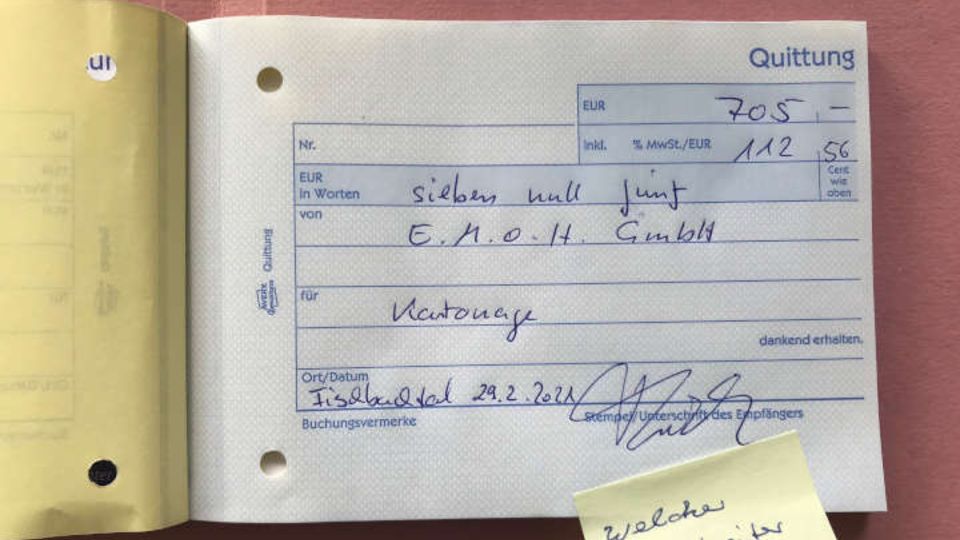 Quittung
EUR 705,–
Nr.
inkl. % MwSt./EUR 112,56
EUR
in Worten sieben null fünf
Cent
wie
oben
von E.M.O.H. GmbH
für
Kartonage
dankend erhalten.
Ort/Datum
Fischbachtal 29.2.2021
Buchungsvermerke
Stempel/Unterschrift des Empfängers
Quittung
Welcher